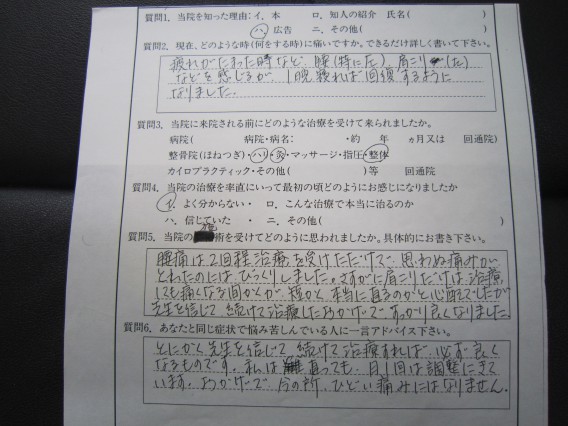 質問1. 当院を知った理由:イ. 本　ロ. 知人の紹介　氏名(　　)
ハ. 広告　ニ. その他(　　)
質問2. 現在、どのような時(何をする時)に痛いですか。できるだけ詳しく書いて下さい。
疲れがたまった時など、腰(特に左)、肩こり(左)
などを感じるが、1晩寝れば回復するように
なりました。
質問3. 当院に来院される前にどのような治療を受けて来られましたか。
病院(　　病院・病名:　　・約　年　ヵ月又は　回通院)
整骨院(ほねつぎ)・ハリ・灸・マッサージ・指圧・整体
カイロプラクティック・その他(　　)等　回通院
質問4. 当院の治療を率直にいって最初の頃どのようにお感じになりましたか
イ. よく分からない・　ロ. こんな治療で本当に治るのか
ハ. 信じていた　・　ニ. その他(　　)
質問5. 当院の施術を受けてどのように思われましたか。具体的にお書き下さい。
腰痛は2回程治療を受けただけで、思わぬ痛みが
とれたのにはびっくりしました。さすがに肩こりだけは、治療
しても痛くなる間かくが、短かく、本当に直るのかと心配でしたが
先生を信じて続けて治療したおかげで、すっかり良くなりました。
質問6. あなたと同じ症状で悩み苦しんでいる人に一言アドバイス下さい。
とにかく先生を信じて、続けて治療すれば、必ず良く
なるものです。私は、直っても、月1回は調整にきて
います。おかげで、今の所、ひどい痛みにはなりません。